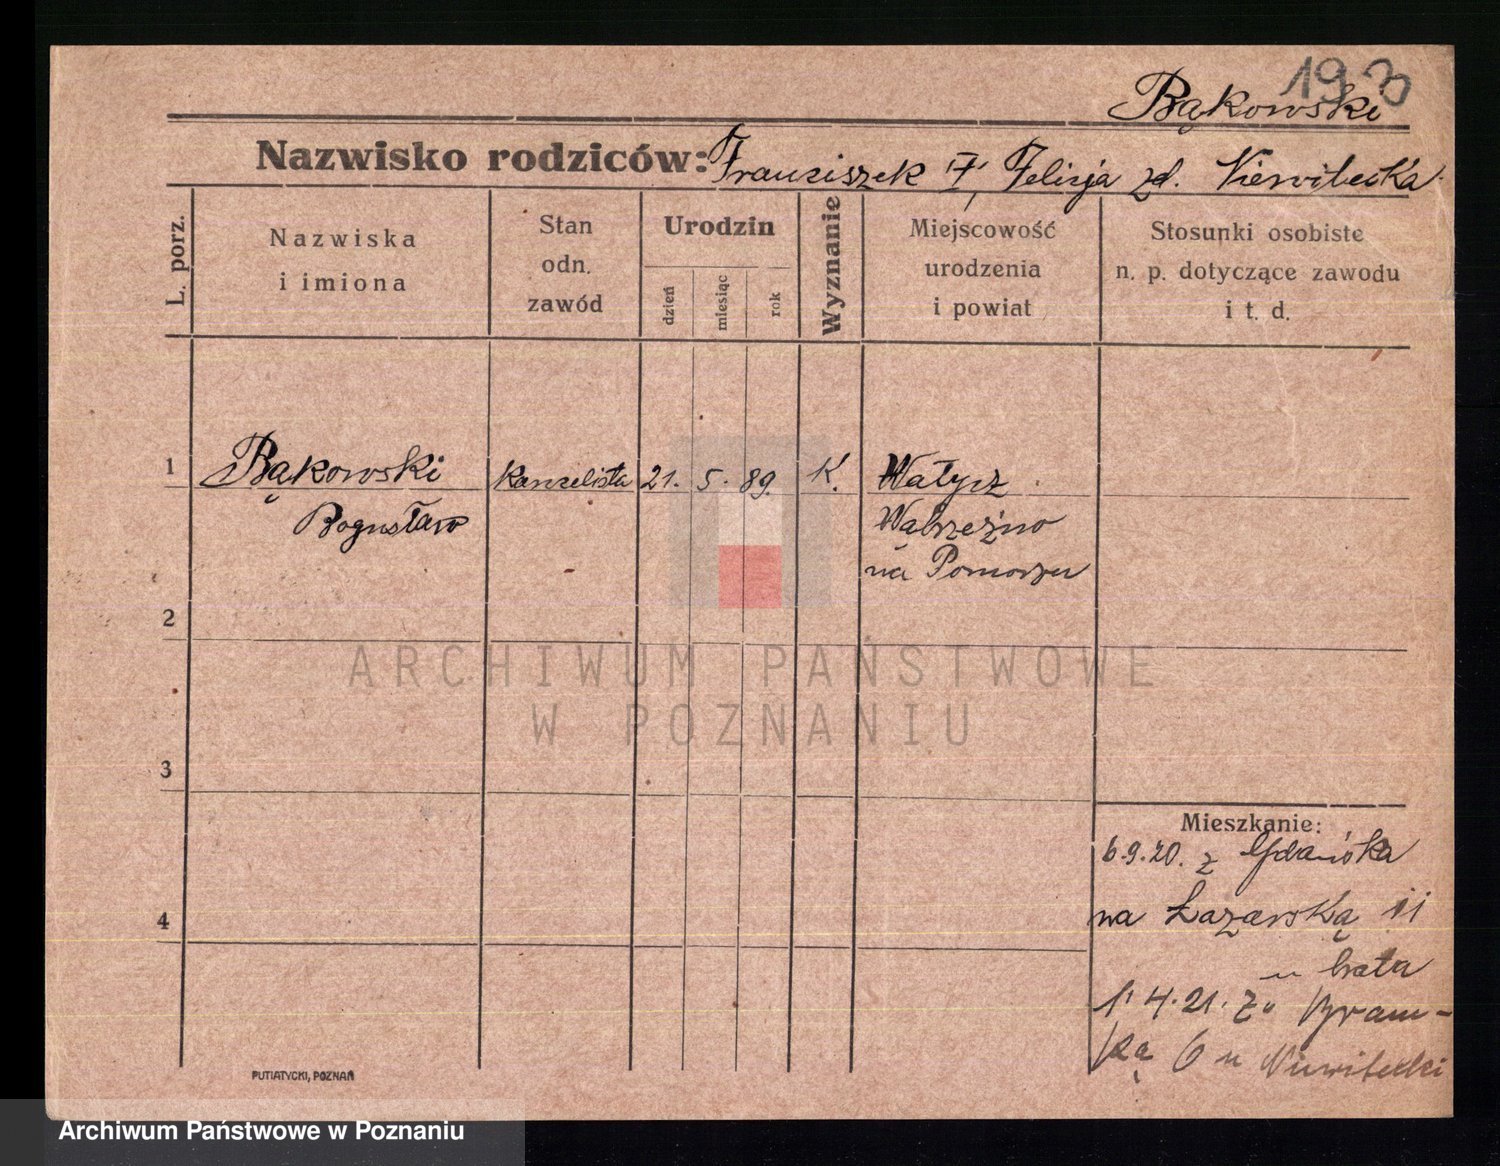 193
Bąkowski
Nazwisko rodziców: Franciszek, Felicja zd. Niewitecka
L. porz.
Nazwiska
i imiona
Stan
odn.
zawód
Urodzin
dzień
miesiąc
rok
Wyznanie
Miejscowość
urodzenia
i powiat
Stosunki osobiste
n. p. dotyczące zawodu
i t. d.
1 Bąkowski kancelista 21. 5. 89. K. Wałycz
Bogusław Wąbrzeźno
na Pomorzu
2
ARCHIWUM PAŃSTWOWE
W POZNANIU
3
Mieszkanie:
6.9.20. z Gdańska
4
na Łazarską 11
u brata
1.4.21. Bram-
ką 6 u Niewitecki
PUTIATYCKI, POZNAŃ
Archiwum Państwowe w Poznaniu